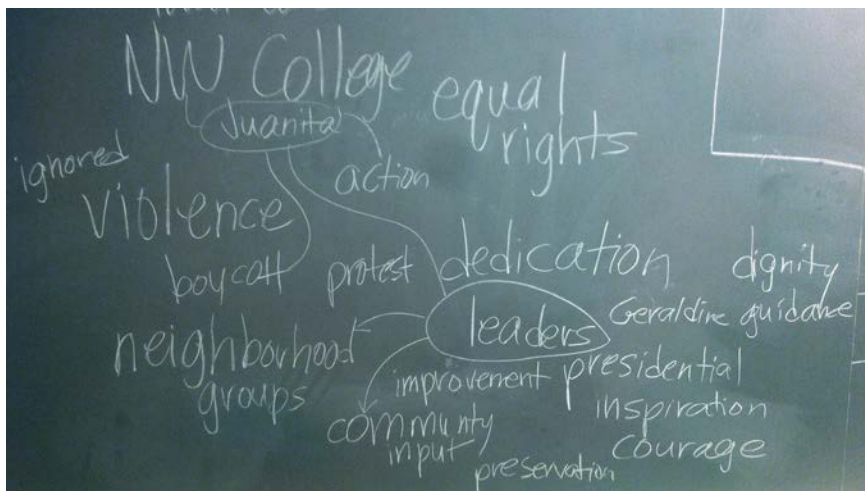 NW College
Juanita
equal
rights
ignored
action
violence
boycott
protest
dedication
dignity
leaders
Geraldine guidance
neighborhood
groups
improvement
presidential
inspiration
communty
input
courage
preservation